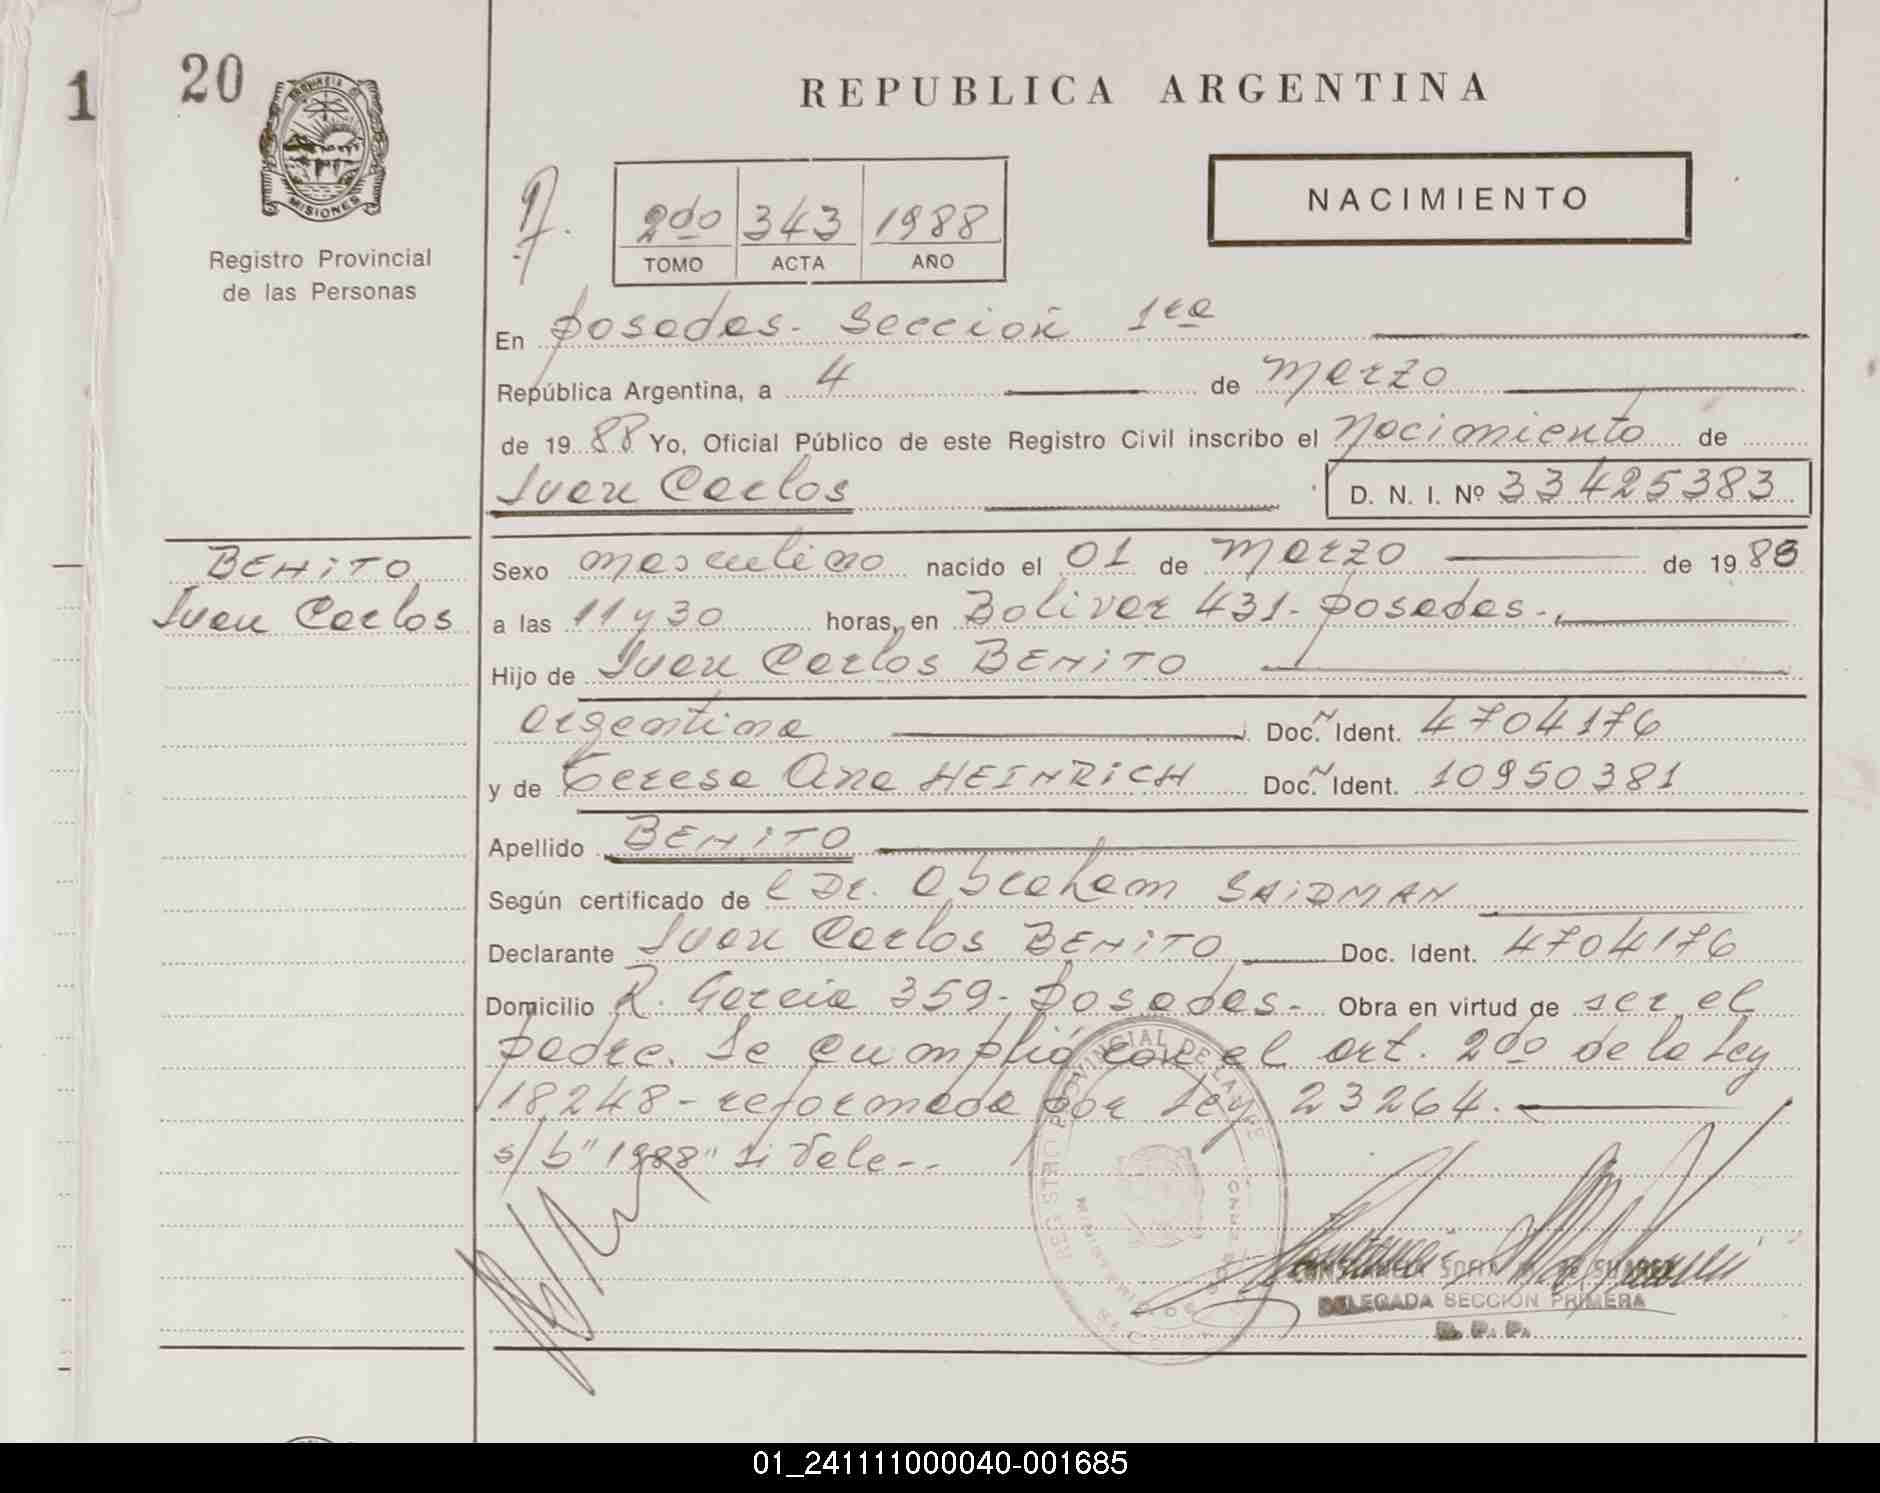 1
20
PROVINCIA DE
MISIONES
Registro Provincial
de las Personas
REPUBLICA ARGENTINA
NACIMIENTO
2do 343 1988
TOMO ACTA AÑO
En Posadas - Sección 1ra
República Argentina, a 4 de Marzo
de 1988 Yo, Oficial Público de este Registro Civil inscribo el Nacimiento de
Juan Carlos D. N. I. Nº 33425383
BENITO
Juan Carlos
Sexo masculino nacido el 01 de Marzo de 1988
a las 11 y 30 horas, en Bolivar 431 - Posadas -
Hijo de Juan Carlos BENITO
argentina Doc. Ident. 4704176
y de Teresa Ana HEINRICH Doc. Ident. 10950381
Apellido BENITO
Según certificado de l Dr. Abraham SAIDMAN
Declarante Juan Carlos BENITO Doc. Ident. 4704176
Domicilio R. Garcia 359 - Posadas - Obra en virtud de ser el
padre. Se cumplió con el art. 2do de la Ley
18248 - reformada por Ley 23264.
s/b "1988" Si Vale -
REGISTRO PROVINCIAL DE LAS
MINISTERIO
DELEGADA SECCION PRIMERA
R. P. P.
01_241111000040-001685